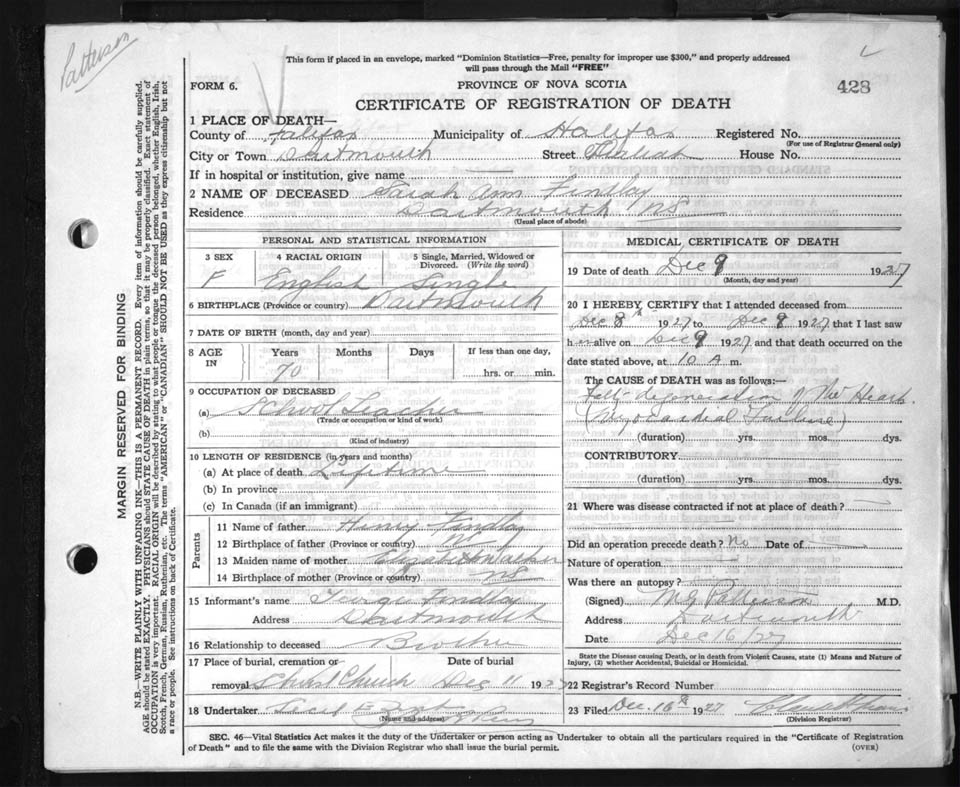 Patterson
This form if placed in an envelope, marked "Dominion Statistics—Free, penalty for improper use $300," and properly addressed
will pass through the Mail "FREE"
FORM 6. PROVINCE OF NOVA SCOTIA 428
CERTIFICATE OF REGISTRATION OF DEATH
1 PLACE OF DEATH—
County of Halifax Municipality of Halifax Registered No.
(For use of Registrar General only)
City or Town Dartmouth Street House No.
If in hospital or institution, give name
2 NAME OF DECEASED Sarah Ann Findlay
Residence Dartmouth NS
(Usual place of abode)
PERSONAL AND STATISTICAL INFORMATION
3 SEX 4 RACIAL ORIGIN 5 Single, Married, Widowed or
Divorced. (Write the word)
F English Single
6 BIRTHPLACE (Province or country) Dartmouth
7 DATE OF BIRTH (month, day and year)
8 AGE IN Years Months Days If less than one day,
70 hrs. or min.
9 OCCUPATION OF DECEASED
(a) School Teacher
(Trade or occupation or kind of work)
(b)
(Kind of industry)
10 LENGTH OF RESIDENCE (in years and months)
(a) At place of death Lifetime
(b) In province
(c) In Canada (if an immigrant)
Parents
11 Name of father Henry Findlay
12 Birthplace of father (Province or country)
13 Maiden name of mother Elizabeth
14 Birthplace of mother (Province or country) NS
15 Informant's name George Findlay
Address Dartmouth
16 Relationship to deceased Brother
17 Place of burial, cremation or Date of burial
removal Christ Church Dec 11 1927
18 Undertaker
(Name and address)
MEDICAL CERTIFICATE OF DEATH
19 Date of death Dec 9 1927
(Month, day and year)
20 I HEREBY CERTIFY that I attended deceased from
Dec 8th 1927 to Dec 9 1927 that I last saw
her alive on Dec 9 1927 and that death occurred on the
date stated above, at 10 A. m.
The CAUSE OF DEATH was as follows:—
Fatty degeneration of the Heart.
(Myocardial Failure)
(duration) yrs. mos. dys.
CONTRIBUTORY
(duration) yrs. mos. dys.
21 Where was disease contracted if not at place of death?
Did an operation precede death? No Date of
Nature of operation
Was there an autopsy?
(Signed) Patterson M.D.
Address Dartmouth
Date Dec 16/27
State the Disease causing Death, or in death from Violent Causes, state (1) Means and Nature of
Injury, (2) whether Accidental, Suicidal or Homicidal.
22 Registrar's Record Number
23 Filed Dec. 16th 1927
(Division Registrar)
SEC. 46—Vital Statistics Act makes it the duty of the Undertaker or person acting as Undertaker to obtain all the particulars required in the "Certificate of Registration
of Death" and to file the same with the Division Registrar who shall issue the burial permit. (OVER)
MARGIN RESERVED FOR BINDING
N.B.—WRITE PLAINLY WITH UNFADING INK—THIS IS A PERMANENT RECORD. Every item of information should be carefully supplied.
AGE should be stated EXACTLY. PHYSICIANS should STATE CAUSE OF DEATH in plain terms, so that it may be properly classified. Exact statement of
OCCUPATION is very important. RACIAL ORIGIN will be described by stating to what people or tongue the deceased person belonged, whether English, Irish,
Scotch, French, German, Russian, Ruthenian, etc. The terms "AMERICAN" or "CANADIAN" SHOULD NOT BE USED as they express citizenship but not
a race or people. See instructions on back of Certificate.